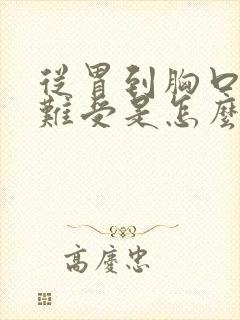 從胃到胸口
難受是怎麼
高慶忠